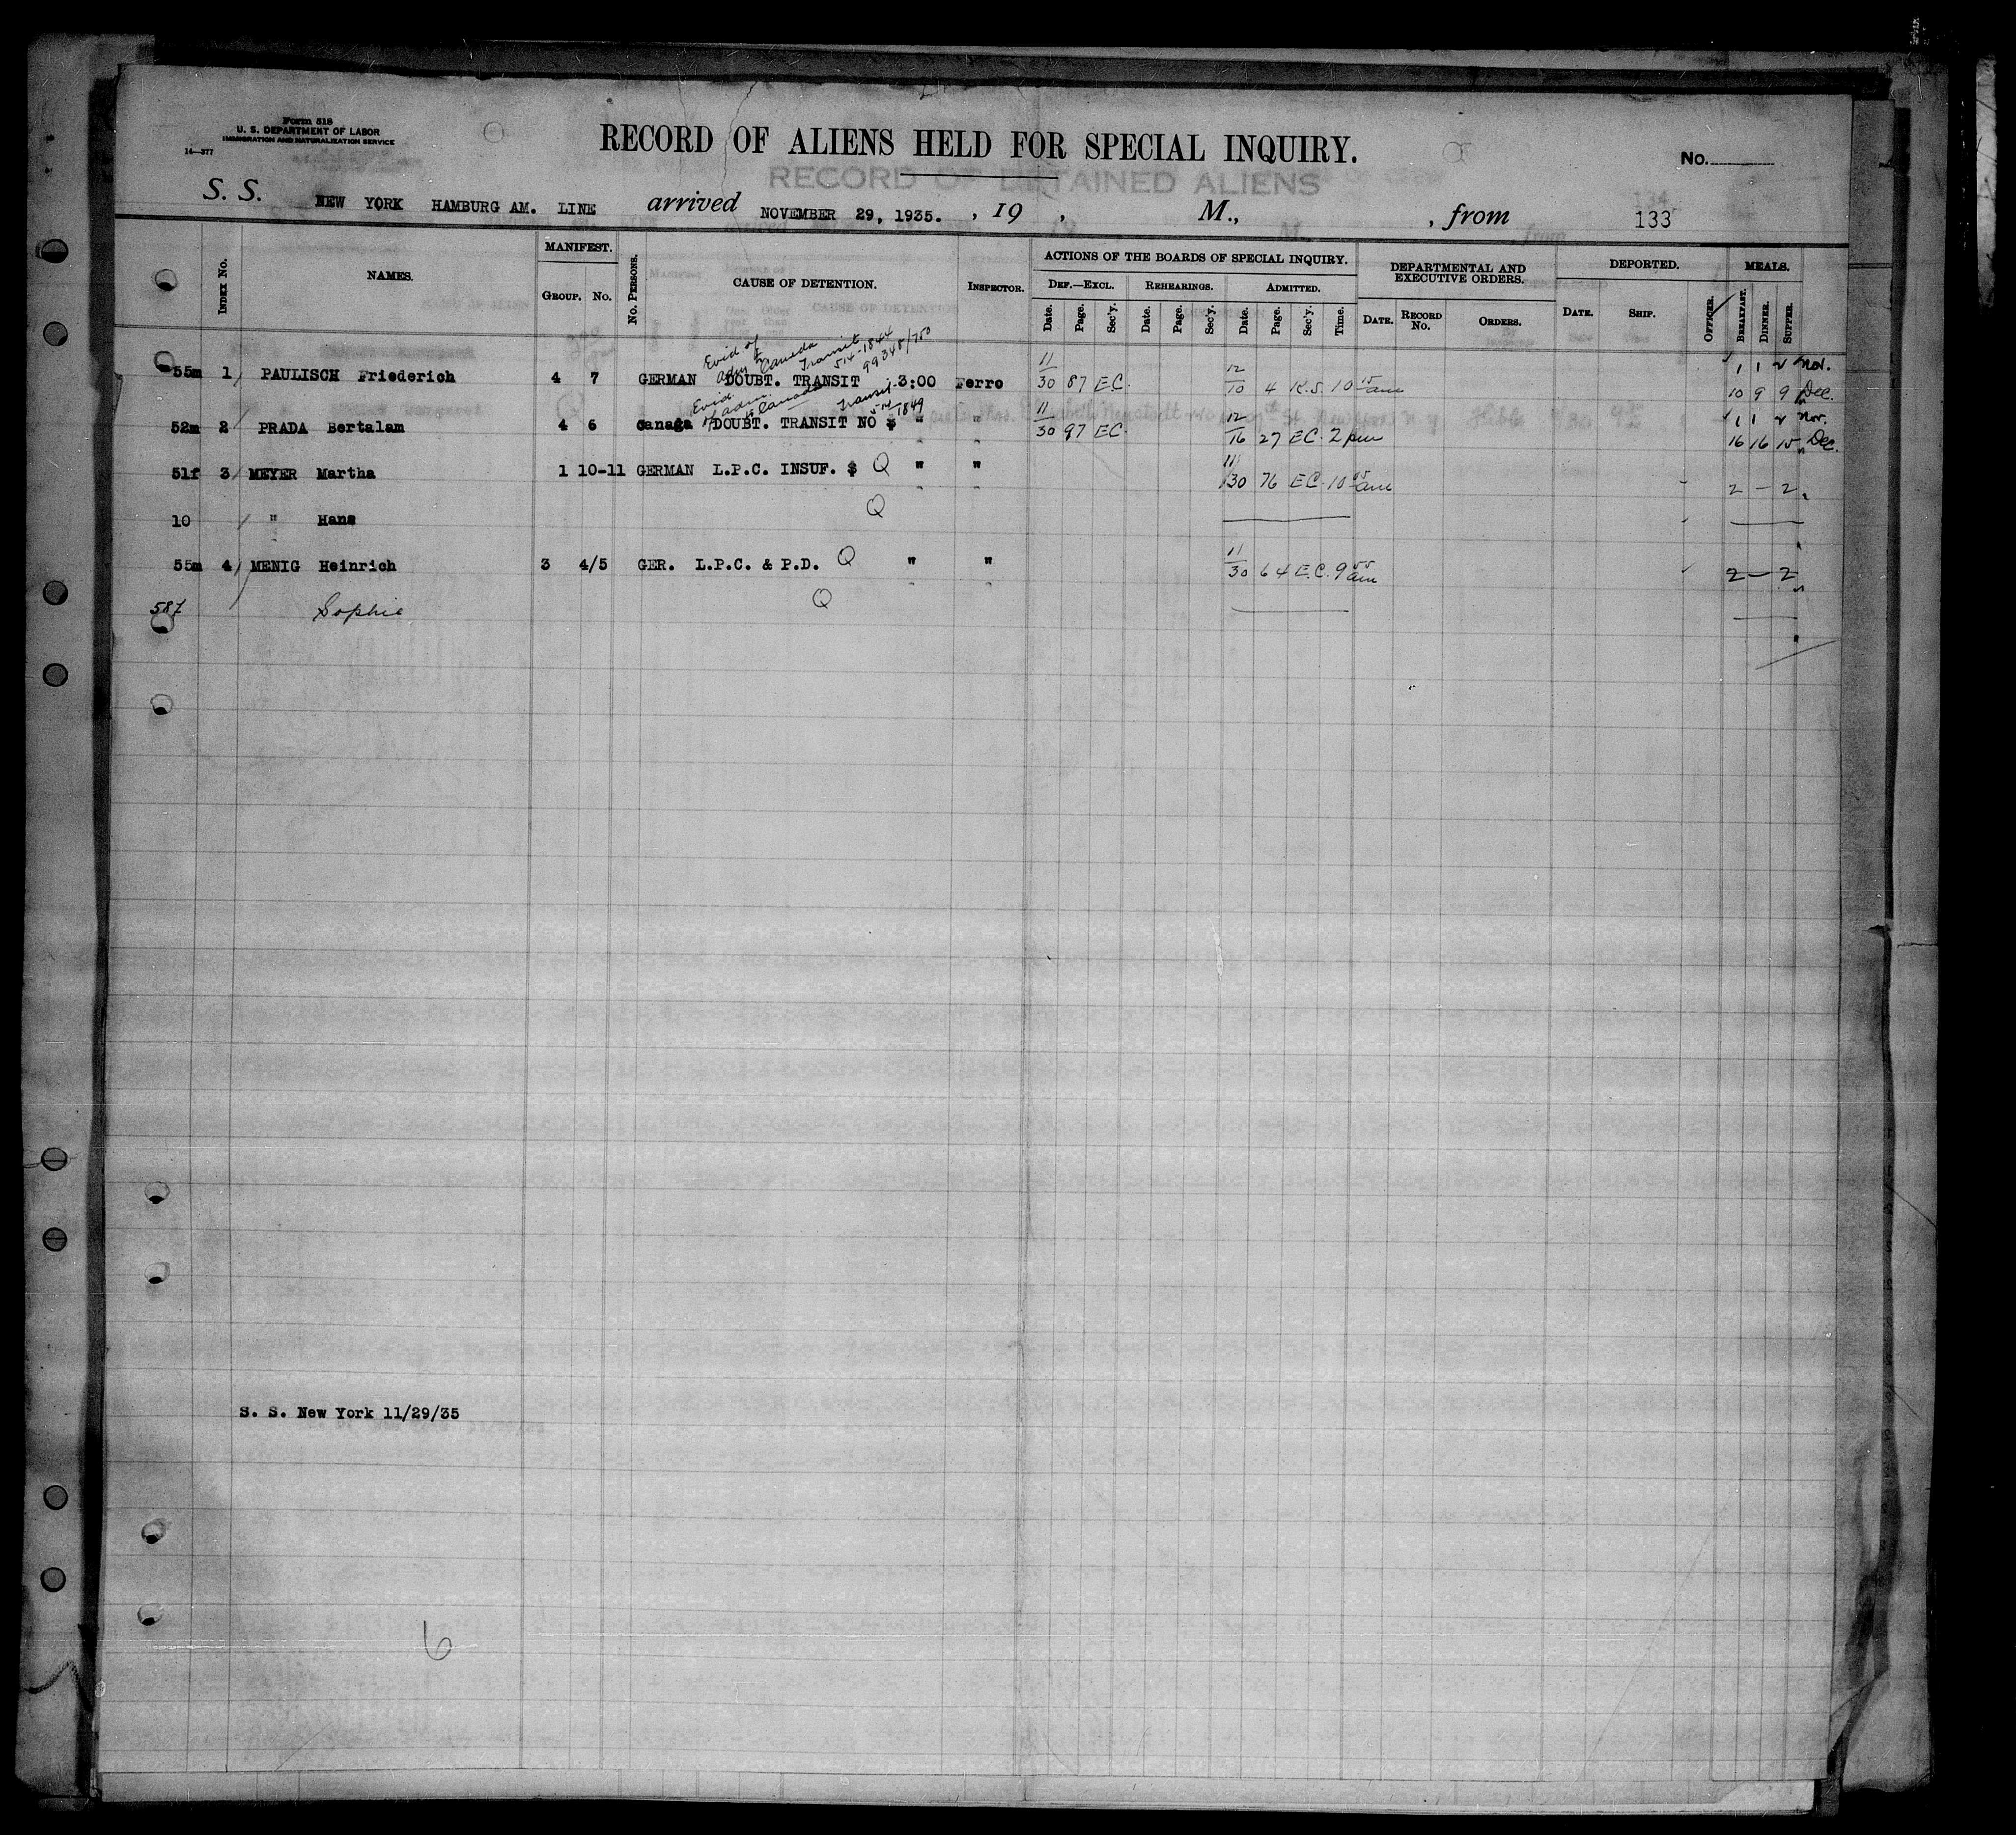 Form 518
U. S. DEPARTMENT OF LABOR
IMMIGRATION AND NATURALIZATION SERVICE
14—377
RECORD OF ALIENS HELD FOR SPECIAL INQUIRY.
No.
RECORD OF DETAINED ALIENS
S. S. NEW YORK HAMBURG AM. LINE arrived NOVEMBER 29, 1935. , 19 , M., , from 133
INDEX No. NAMES. MANIFEST. GROUP. No. No. PERSONS. CAUSE OF DETENTION. INSPECTOR. ACTIONS OF THE BOARDS OF SPECIAL INQUIRY. DEPARTMENTAL AND EXECUTIVE ORDERS. DEPORTED. MEALS.
DEF.—EXCL. REHEARINGS. ADMITTED.
Date. Page. Sec'y. Date. Page. Sec'y. Date. Page. Sec'y. Time. DATE. RECORD No. ORDERS. DATE. SHIP. OFFICER. BREAKFAST. DINNER. SUPPER.
Evid. of adm to Canada Transit 514-1844 99348/750
55m 1 PAULISCH Friederich 4 7 GERMAN DOUBT. TRANSIT 3:00 Ferro 11/30 87 E.C. 12/10 4 K.S. 10 15 am 1 1 2 Nov.
10 9 9 Dec.
Evid. of adm. to Canada Transit 514/1849
52m 2 PRADA Bertalam 4 6 Canada DOUBT. TRANSIT NO $ " " 11/30 97 EC. 12/16 27 EC. 2 pm 1 1 2 Nov.
16 16 15 Dec.
51f 3 MEYER Martha 1 10-11 GERMAN L.P.C. INSUF. $ Q " " 11/30 76 E.C. 10 05 am 2 — 2
10 " Hans Q
55m 4 MENIG Heinrich 3 4/5 GER. L.P.C. & P.D. Q " " 11/30 64 E.C. 9 55 am 2 — 2
58f Sophie Q
S. S. New York 11/29/35
6